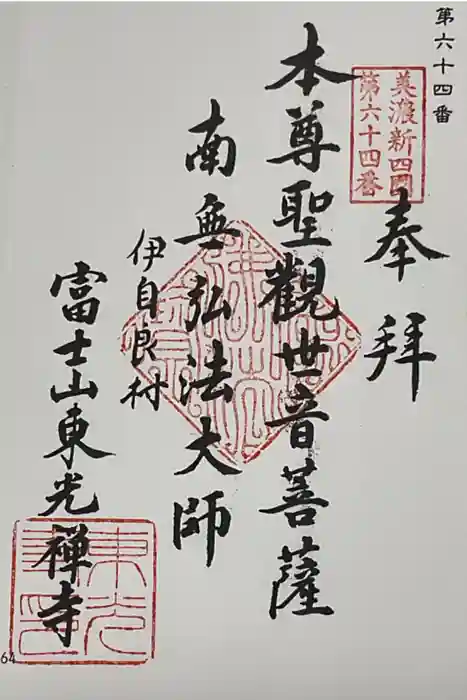 第六十四番
美濃新四國
第六十四番
奉拝
本尊聖觀世音菩薩
南無弘法大師
伊自良村
富士山東光禅寺
64